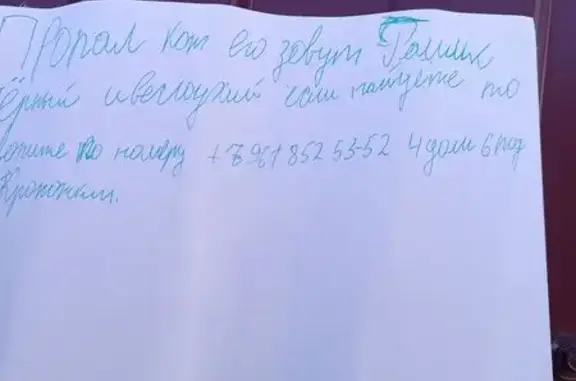 Пропал кот его зовут Ромчик
ёрный и вислоухий если найдете то
оните по номеру +7 961 852 53-52 4 дом 6 под